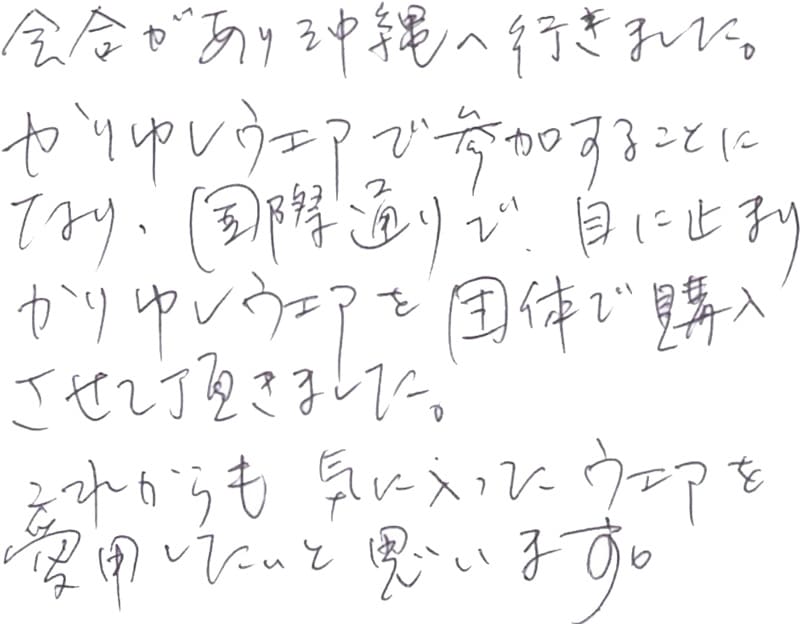 会合があり沖縄へ行きました。
かりゆしウエアで参加することに
なり、国際通りで、目に止まり
かりゆしウエアを団体で購入
させて頂きました。
これからも気に入ったウエアを
愛用したいと思います。